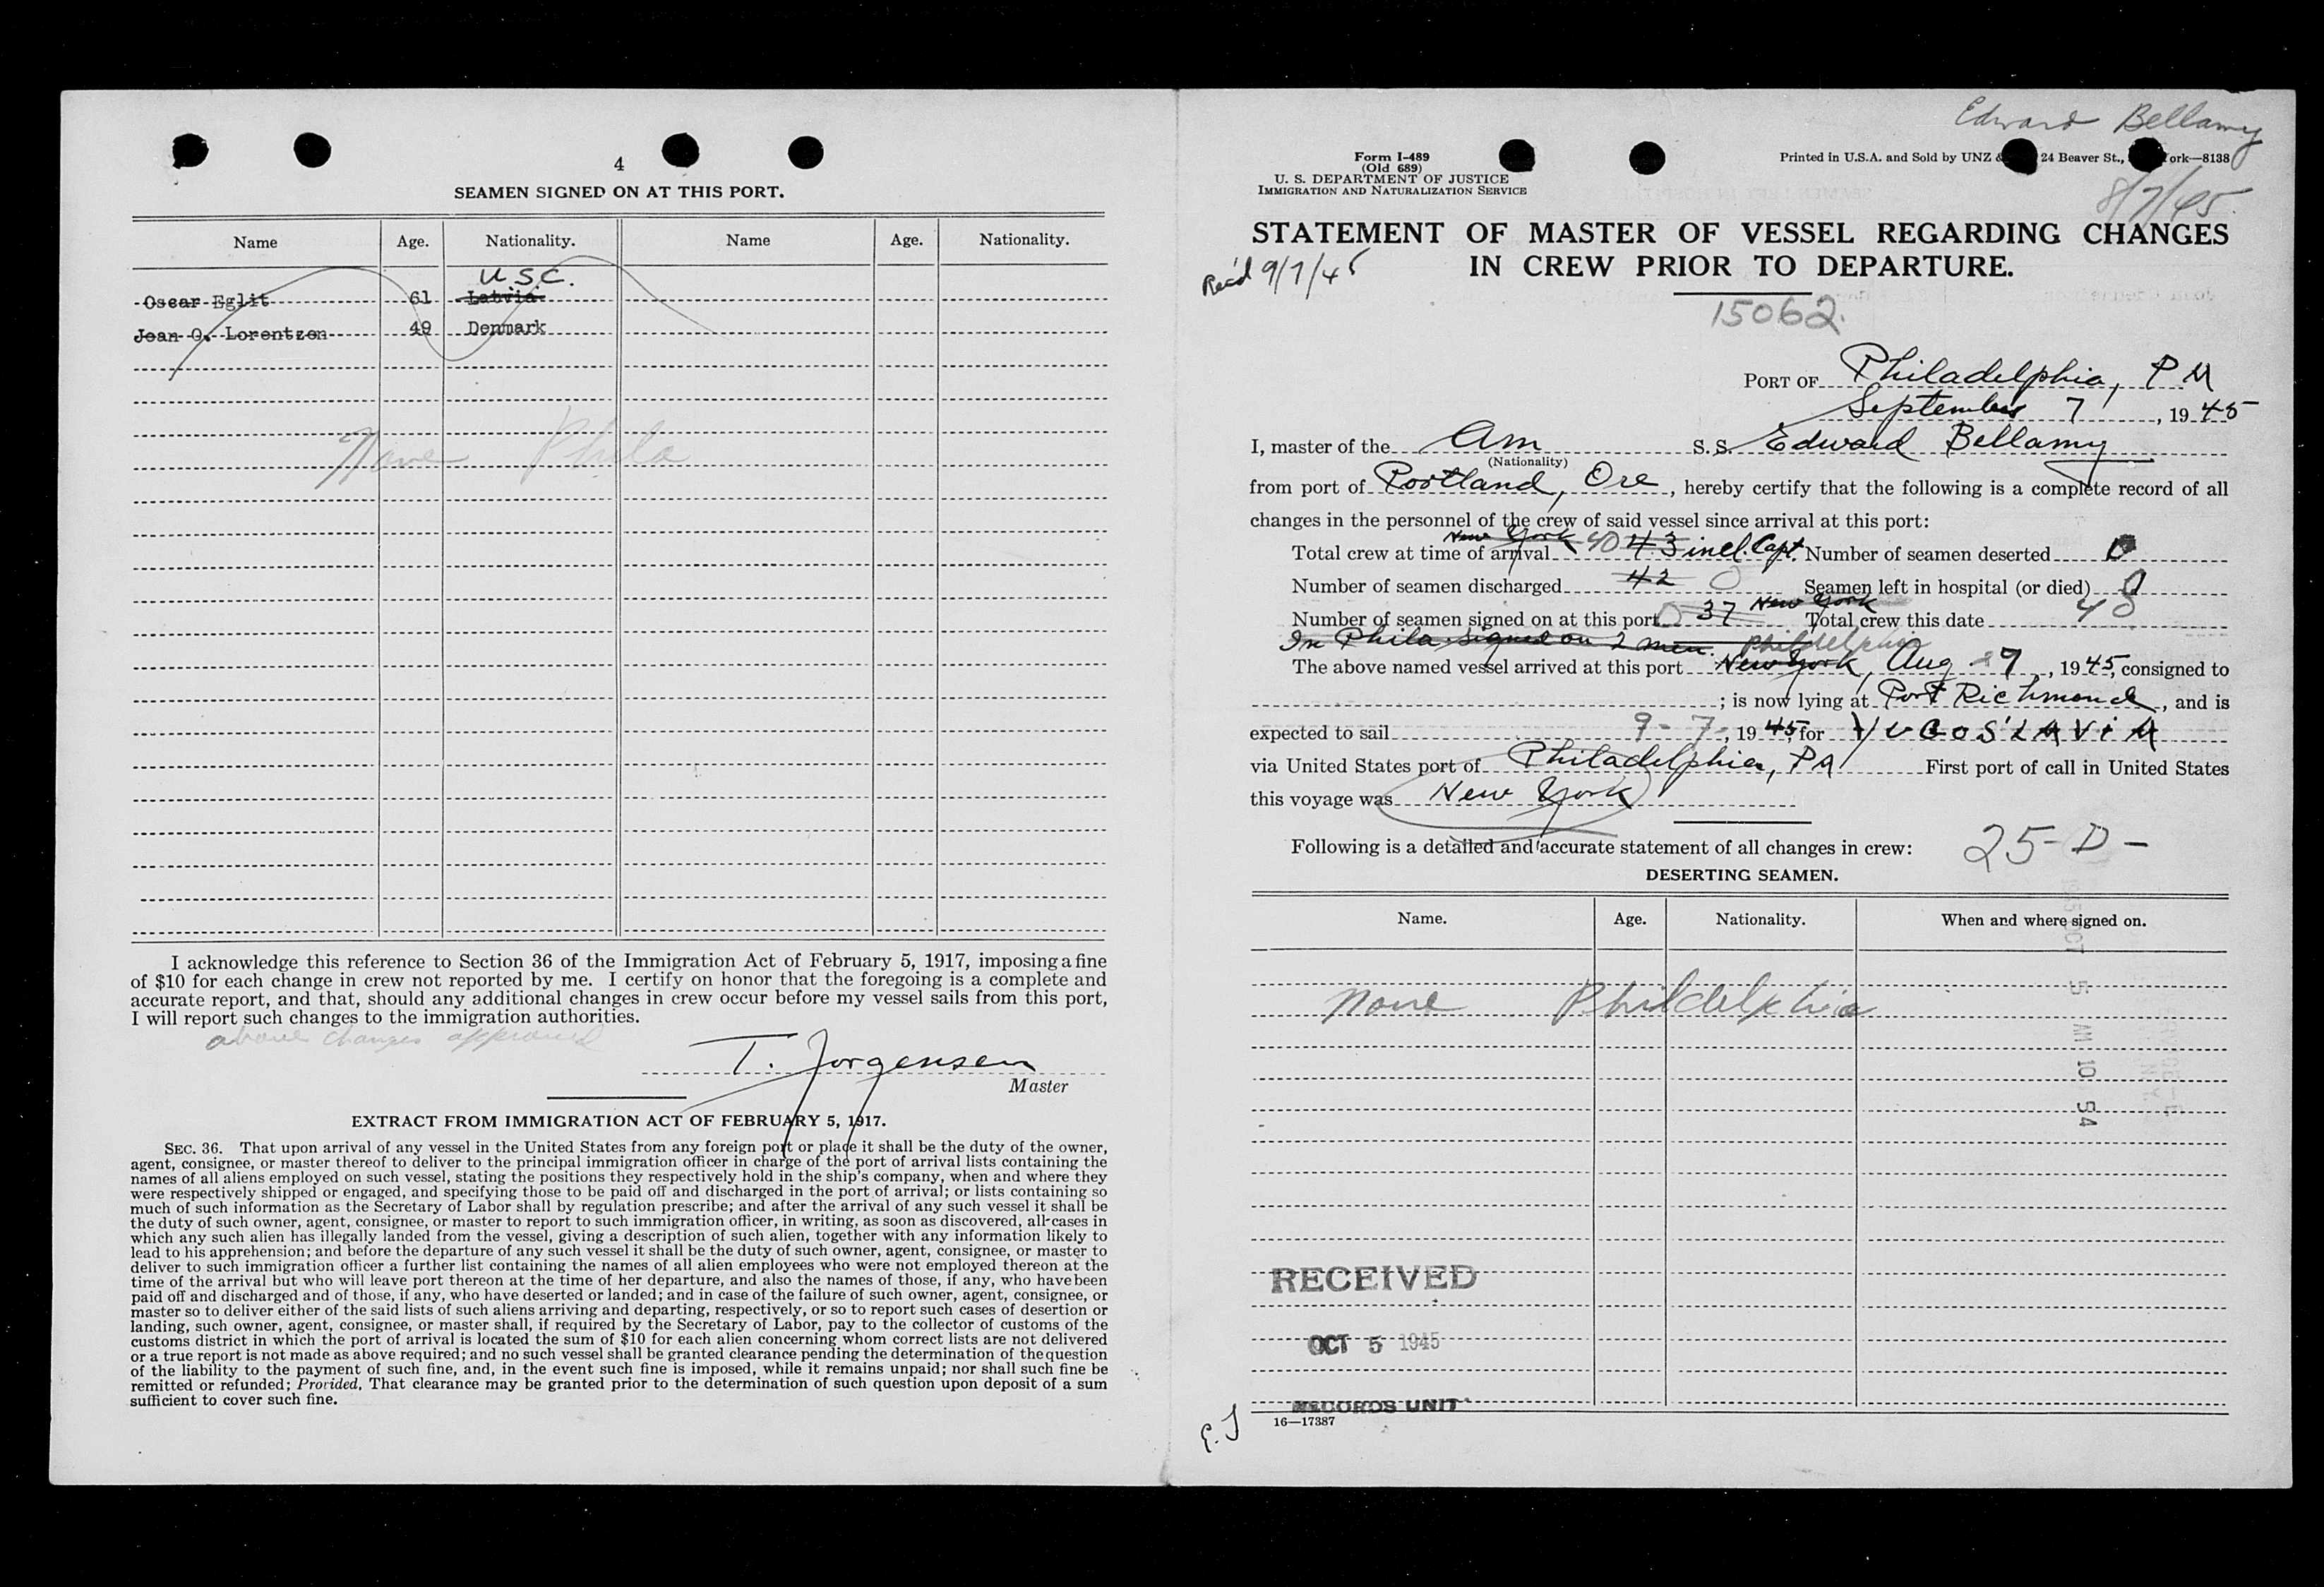 4
SEAMEN SIGNED ON AT THIS PORT.
Name Age. Nationality. Name Age. Nationality.
U.S.C.
Oscar Eglit 61 Latvia
Jean O. Lorentzen 49 Denmark
None Phila
I acknowledge this reference to Section 36 of the Immigration Act of February 5, 1917, imposing a fine
of $10 for each change in crew not reported by me. I certify on honor that the foregoing is a complete and
accurate report, and that, should any additional changes in crew occur before my vessel sails from this port,
I will report such changes to the immigration authorities.
above changes approved
T. Jorgensen
Master
EXTRACT FROM IMMIGRATION ACT OF FEBRUARY 5, 1917.
SEC. 36. That upon arrival of any vessel in the United States from any foreign port or place it shall be the duty of the owner,
agent, consignee, or master thereof to deliver to the principal immigration officer in charge of the port of arrival lists containing the
names of all aliens employed on such vessel, stating the positions they respectively hold in the ship's company, when and where they
were respectively shipped or engaged, and specifying those to be paid off and discharged in the port of arrival; or lists containing so
much of such information as the Secretary of Labor shall by regulation prescribe; and after the arrival of any such vessel it shall be
the duty of such owner, agent, consignee, or master to report to such immigration officer, in writing, as soon as discovered, all cases in
which any such alien has illegally landed from the vessel, giving a description of such alien, together with any information likely to
lead to his apprehension; and before the departure of any such vessel it shall be the duty of such owner, agent, consignee, or master to
deliver to such immigration officer a further list containing the names of all alien employees who were not employed thereon at the
time of the arrival but who will leave port thereon at the time of her departure, and also the names of those, if any, who have been
paid off and discharged and of those, if any, who have deserted or landed; and in case of the failure of such owner, agent, consignee, or
master so to deliver either of the said lists of such aliens arriving and departing, respectively, or so to report such cases of desertion or
landing, such owner, agent, consignee, or master shall, if required by the Secretary of Labor, pay to the collector of customs of the
customs district in which the port of arrival is located the sum of $10 for each alien concerning whom correct lists are not delivered
or a true report is not made as above required; and no such vessel shall be granted clearance pending the determination of the question
of the liability to the payment of such fine, and, in the event such fine is imposed, while it remains unpaid; nor shall such fine be
remitted or refunded; Provided, That clearance may be granted prior to the determination of such question upon deposit of a sum
sufficient to cover such fine.
Edward Bellamy
8/7/45
Form I-489
(Old 689)
U. S. DEPARTMENT OF JUSTICE
IMMIGRATION AND NATURALIZATION SERVICE
Printed in U.S.A. and Sold by UNZ & 24 Beaver St., ork—8138
STATEMENT OF MASTER OF VESSEL REGARDING CHANGES
IN CREW PRIOR TO DEPARTURE.
Rec'd 9/7/45
15062.
PORT OF Philadelphia, PA
September 7, 1945
I, master of the Am S. S. Edward Bellamy
(Nationality)
from port of Portland, Ore, hereby certify that the following is a complete record of all
changes in the personnel of the crew of said vessel since arrival at this port:
New York
Total crew at time of arrival 40 43 incl. Capt. Number of seamen deserted 0
Number of seamen discharged 42 0 Seamen left in hospital (or died) 0
New York
Number of seamen signed on at this port 0 37 Total crew this date 40
In Phila signed on 2 men. Phildelphia
The above named vessel arrived at this port New York, Aug 7, 1945, consigned to
; is now lying at Port Richmond, and is
expected to sail 9-7, 1945, for YUGOSLAVIA
via United States port of Philadelphia, PA First port of call in United States
this voyage was New York
Following is a detailed and accurate statement of all changes in crew:
25-D-
DESERTING SEAMEN.
Name. Age. Nationality. When and where signed on.
None Phildelphia
OCT 5 AM 10 54
RECEIVED
OCT 5 1945
RECORDS UNIT
16—17387
E.J